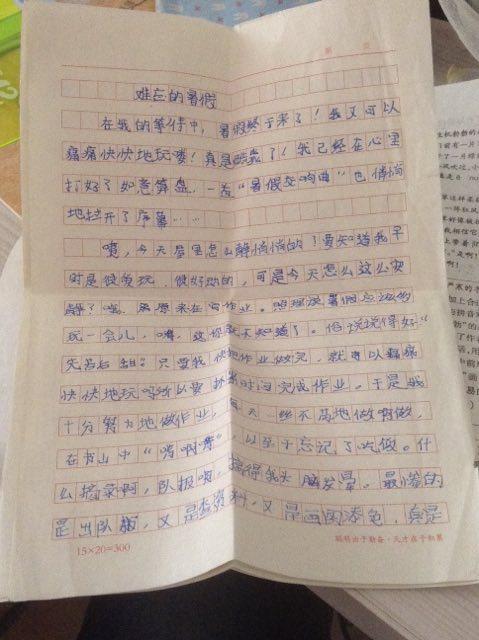 难忘的暑假
在我的等待中，暑假终于来了！我又可以
痛痛快快地玩喽！真是酷毙了！我已经在心里
打好了如意算盘，一首“暑假交响曲”也悄悄
地拉开了序幕……
咦，今天屋里怎么静悄悄的？要知道我平
时是很贪玩、很好动的，可是今天怎么这么安
静？哦，原来在写作业。照理说暑假应该多
玩一会儿，嘿，这你就不知道了。俗话说得好“
先苦后甜”只要我快把作业做完，就可以痛痛
快快地玩
时间完成作业。于是我
十分努力地做作业，每天一丝不苟地做啊做，
在书山中“啃啊啃”，以至于忘记了吃饭。什
么摘录啊，队报啊，搞得我头脑发晕。最惨的
是出队报，又是查资料，又是画图添色，真是
15×20=300